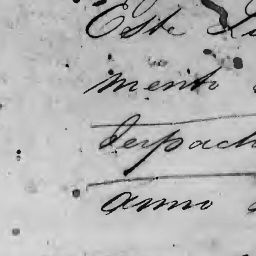 Este Li
mento
Despach
anno